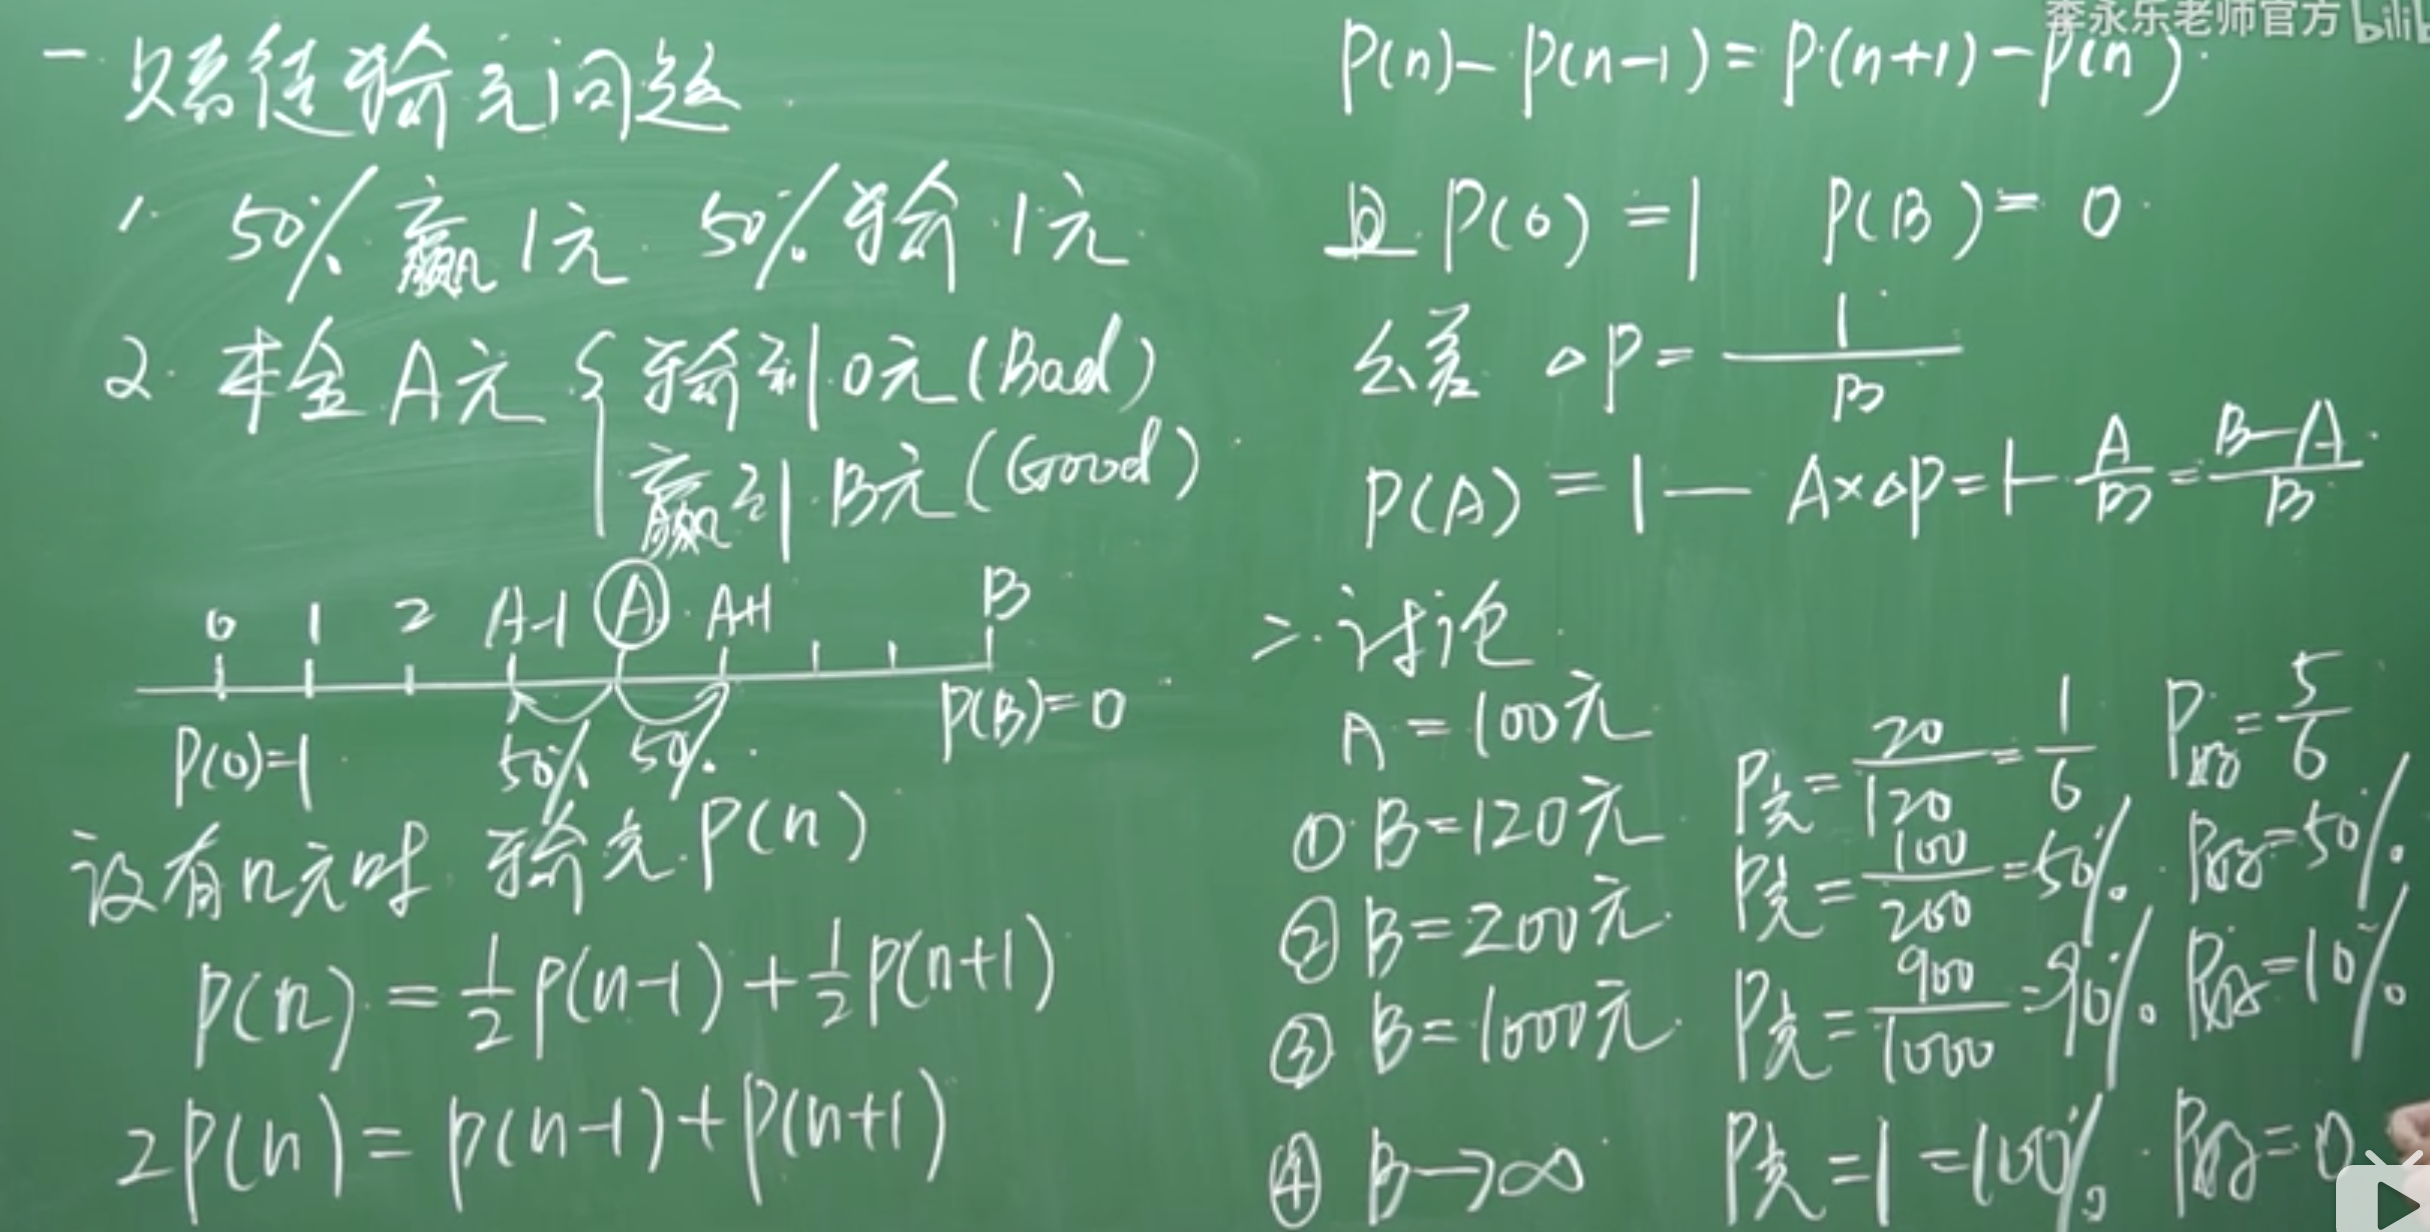 一. 赌徒输光问题
1. 50% 赢1元 50%输1元
2. 本金A元 { 输到0元(Bad)
赢到B元(Good)
0 1 2 A-1 A A+1 B
P(0)=1 50% 50% P(B)=0
设有n元时 输光P(n)
P(n) = 1/2 P(n-1) + 1/2 P(n+1)
2P(n) = P(n-1) + P(n+1)
李永乐老师官方 bili
P(n) - P(n-1) = P(n+1) - P(n)
且 P(0) = 1 P(B) = 0
公差 △P = 1/B
P(A) = 1 - A×△P = 1 - A/B = (B-A)/B
二. 讨论
A = 100元
① B=120元 P光 = 20/120 = 1/6 P胜 = 5/6
② B=200元 P光 = 100/200 = 50% P胜 = 50%
③ B=1000元 P光 = 900/1000 = 90% P胜 = 10%
④ B→∞ P光 = 1 = 100% P胜 = 0